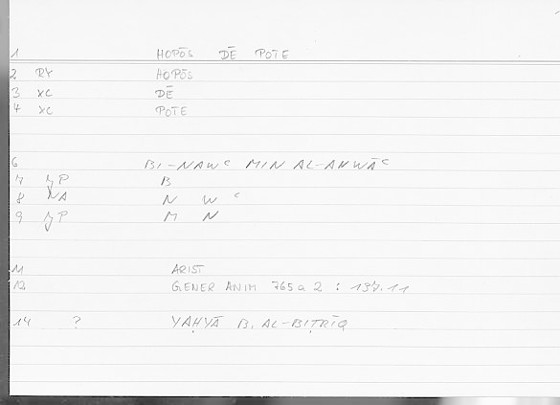 1 HOPŌS DĒ POTE
2 RY HOPŌS
3 XC DĒ
4 XC POTE
6 BI-NAWʿ MIN AL-ANWĀʿ
7 JP B
8 NA N W ʿ
9 JP M N
11 ARIST
12 GENER ANIM 765a2 : 137.11
14 ? YAḤYĀ B. AL-BIṬRĪQ